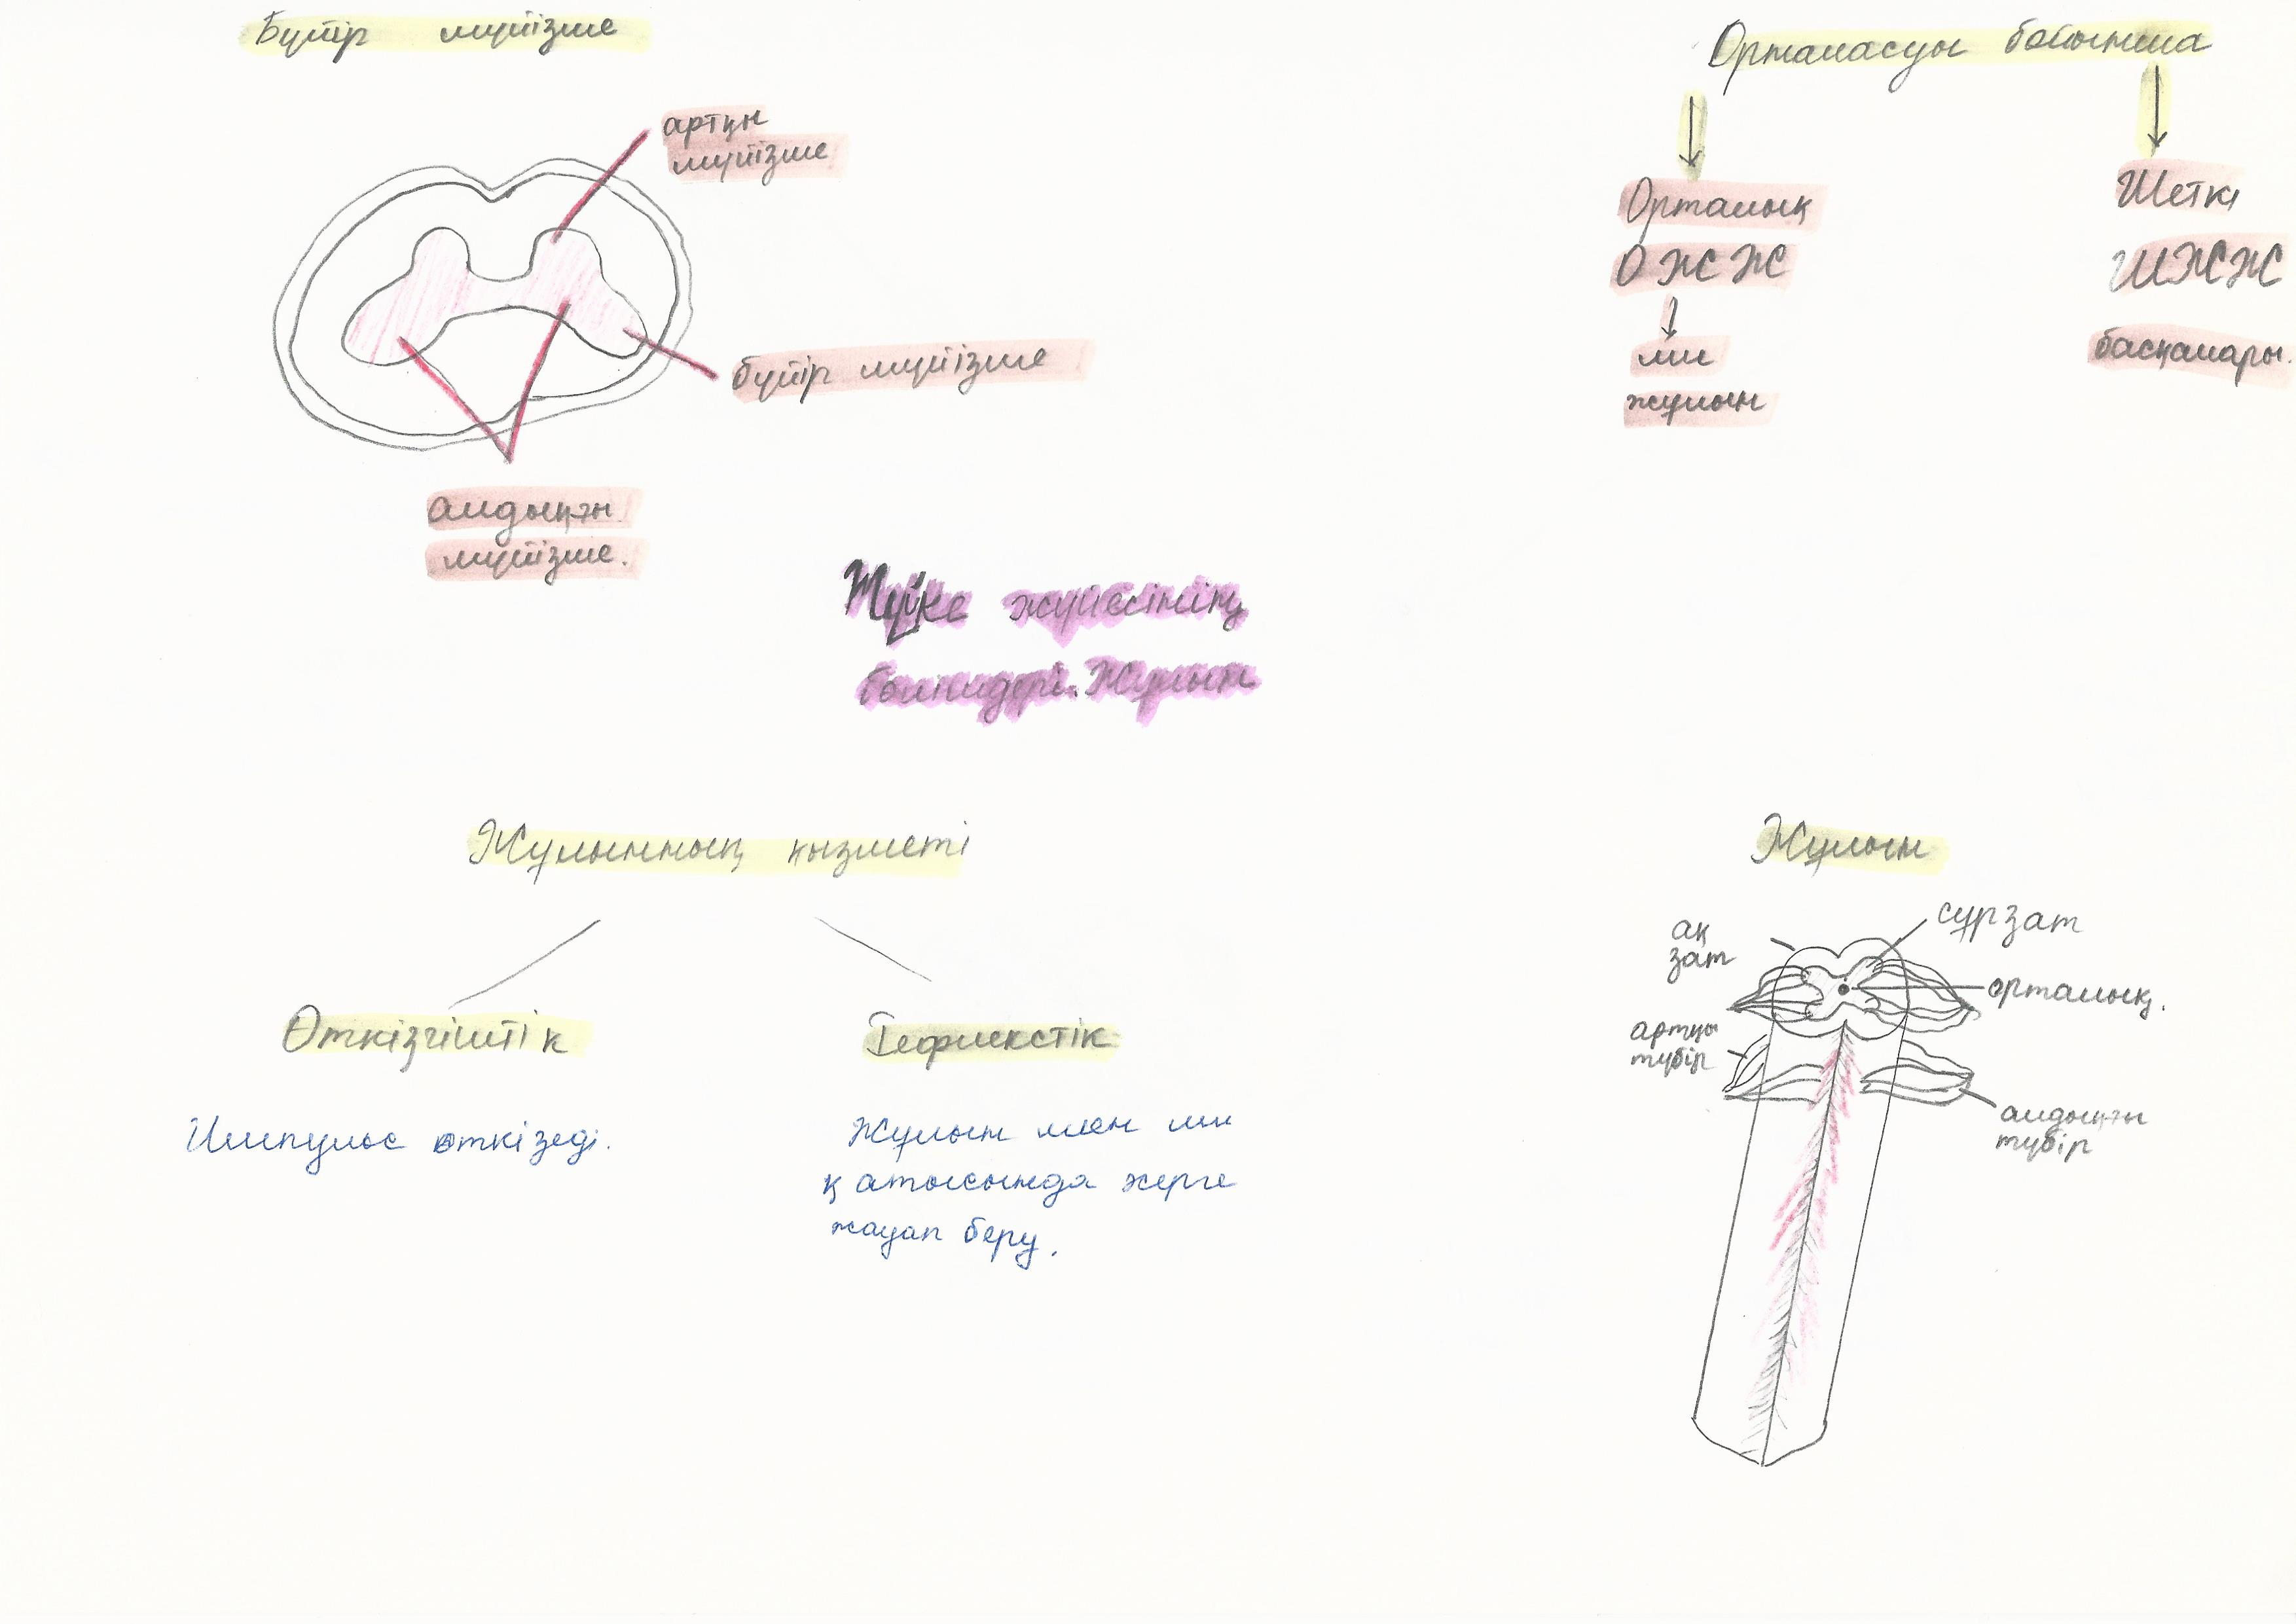 Бүйір мүйізше
артқы
мүйізше
бүйір мүйізше
алдыңғы
мүйізше.
Орталасуы бойынша
Орталық
ОЖЖ
ми
жұлын
Шеткі
ШЖЖ
басқалары.
Жүйке жүйесінің
бөлімдері. Жұлын
Жұлынның қызметі
Өткізгіштік
Импульс өткізеді.
Рефлекстік
Жұлын мен ми
қатысында жерге
жауап беру.
Жұлын
ақ
зат
сұр зат
орталық.
артқы
түбір
алдыңғы
түбір